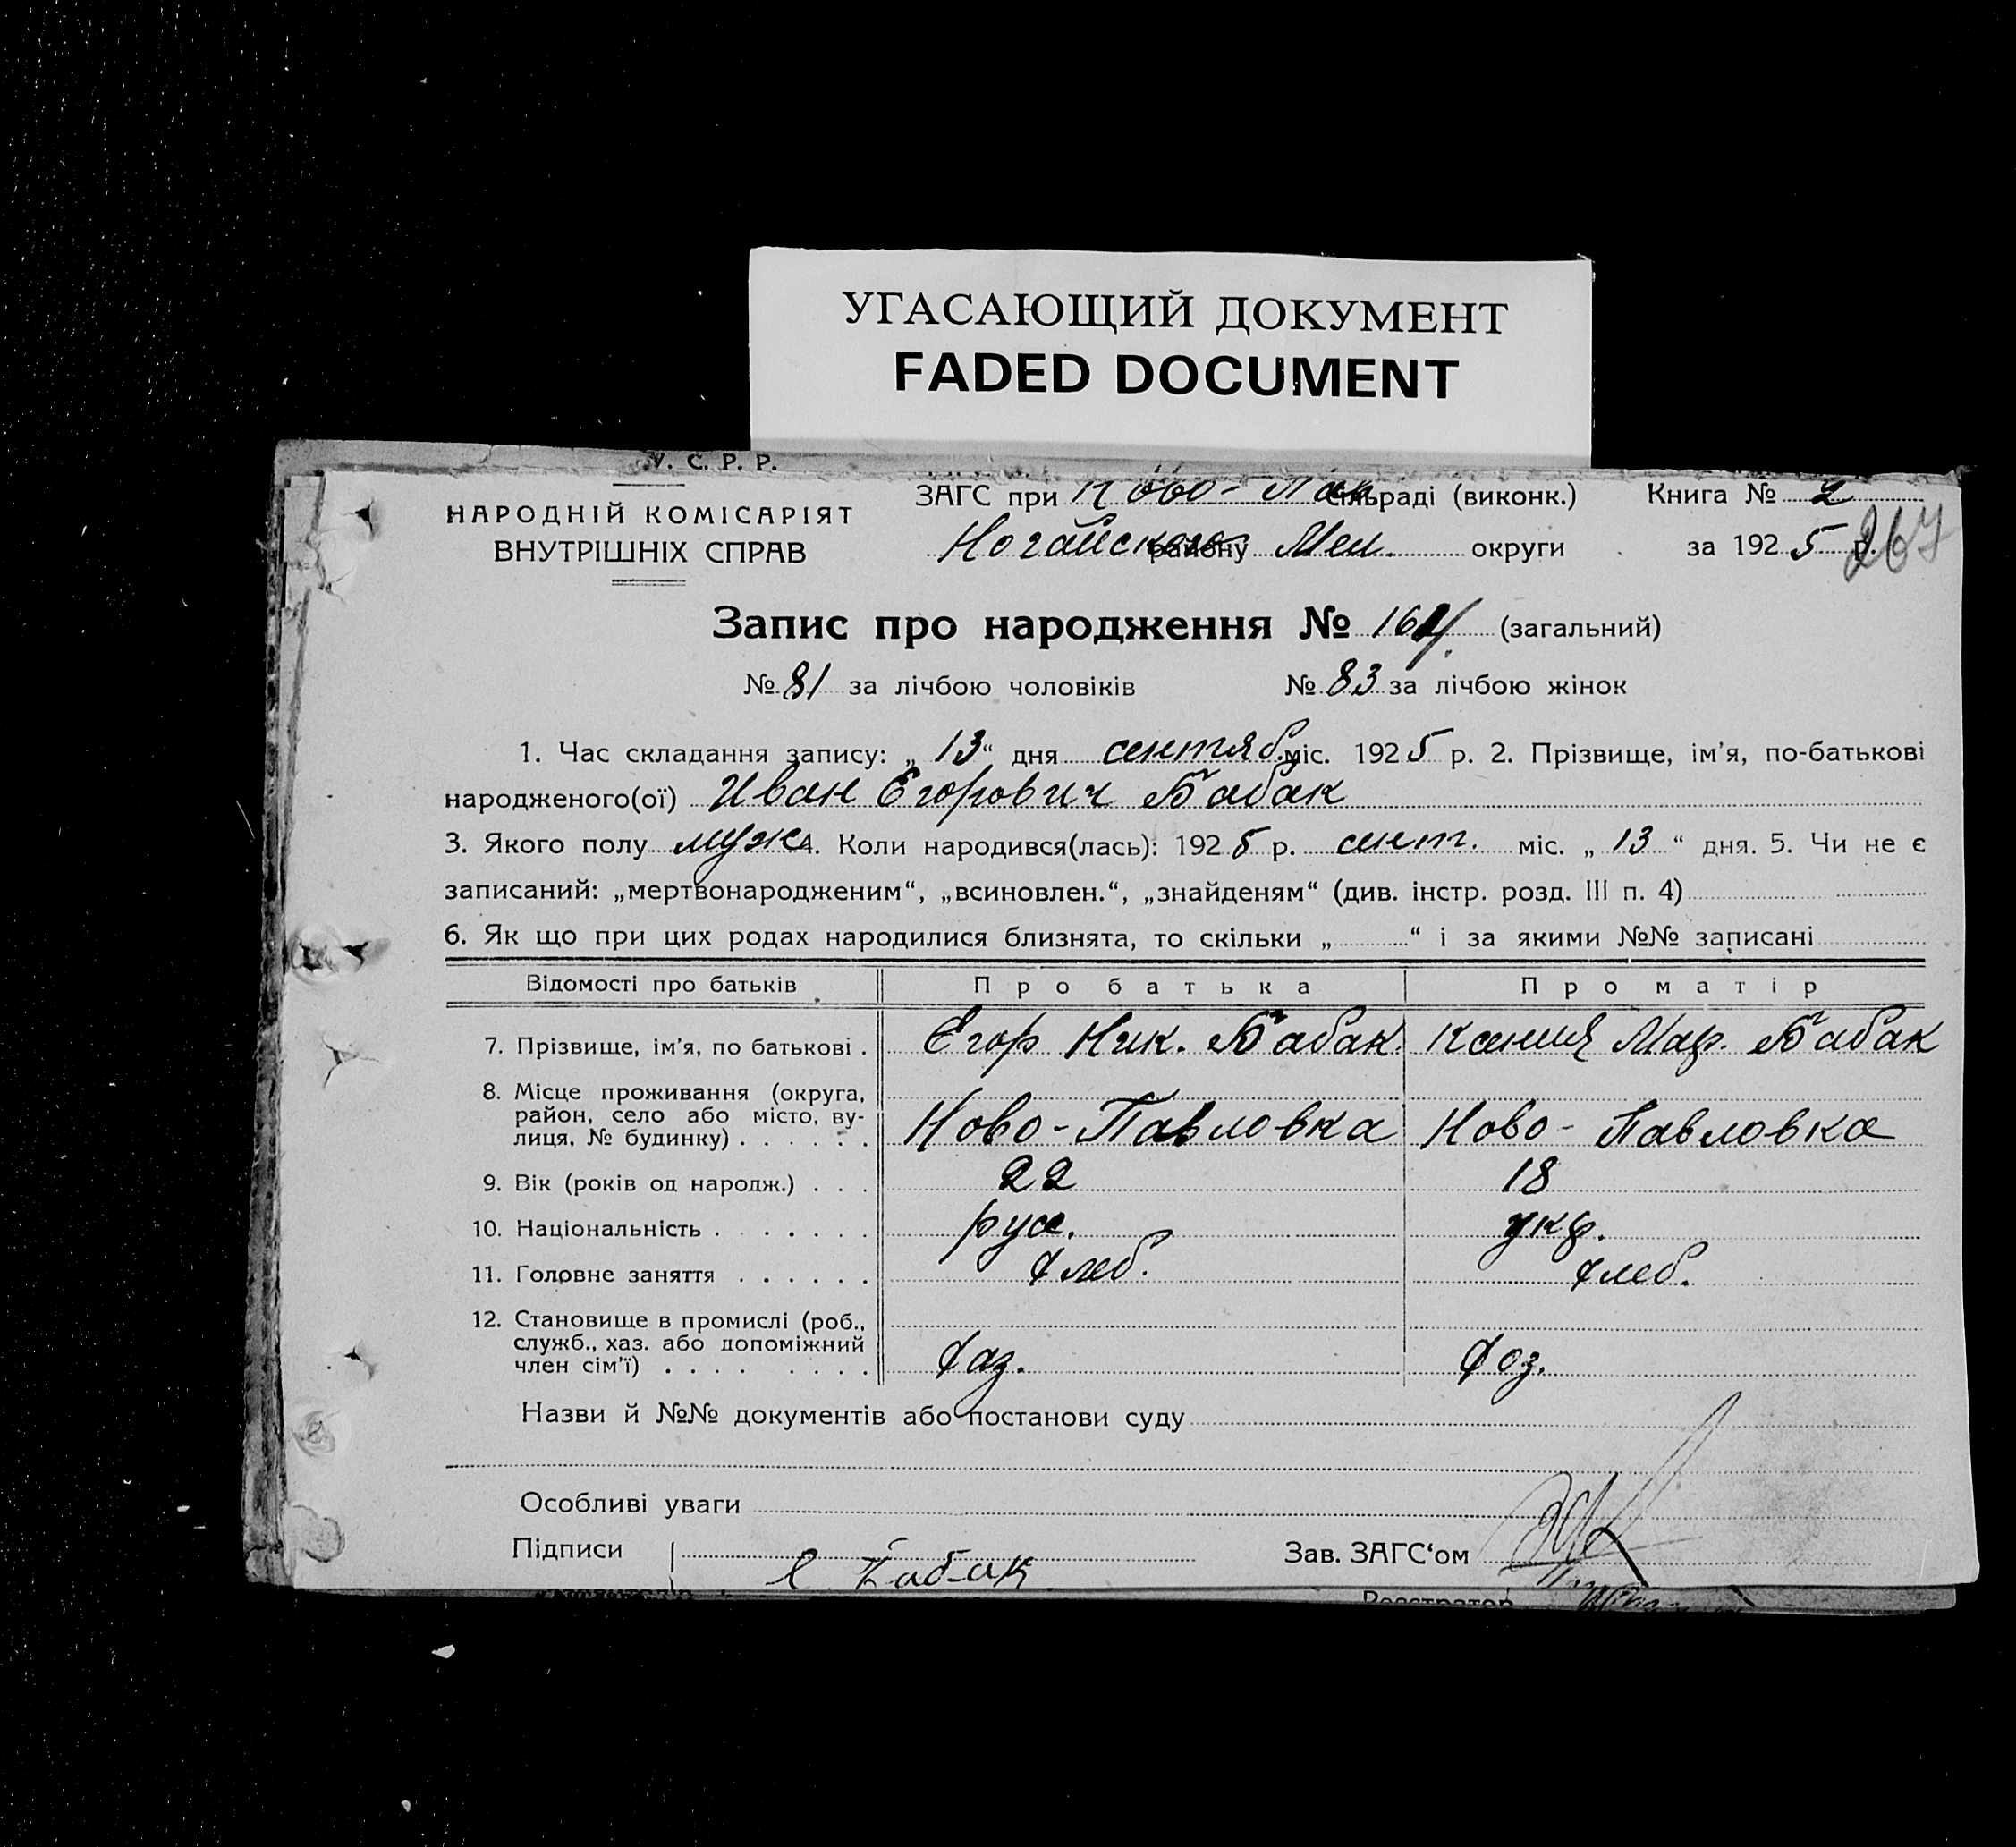 УГАСАЮЩИЙ ДОКУМЕНТ
FADED DOCUMENT
У. С. Р. Р.
НАРОДНІЙ КОМІСАРІЯТ
ВНУТРІШНІХ СПРАВ
ЗАГС при Ново-Пав сільраді (виконк.) Книга № 2
Ногайского району Мел. округи за 1925 р. 267
Запис про народження № 164 (загальний)
№ 81 за лічбою чоловіків № 83 за лічбою жінок
1. Час складання запису: „ 13 “ дня сентяб. міс. 1925 р. 2. Прізвище, ім’я, по-батькові
народженого(ої) Иван Егорович Бабак
3. Якого полу муж 4. Коли народився(лась): 1925 р. сент. міс. „ 13 “ дня. 5. Чи не є
записаний: „мертвонародженим“, „всиновлен.“, „знайденям“ (див. інстр. розд. III п. 4)
6. Як що при цих родах народилися близнята, то скільки „ “ і за якими №№ записані
Відомості про батьків Про батька Про матір
7. Прізвище, ім’я, по батькові . Егор Ник. Бабак. Ксения Мар. Бабак
8. Місце проживання (округа,
район, село або місто, ву-
лиця, № будинку) . . . . . . Ново-Павловка Ново-Павловка
9. Вік (років од народж.) . . . 22 18
10. Національність . . . . . . . рус. укр.
11. Головне заняття . . . . . . хлеб. хлеб.
12. Становище в промислі (роб.,
служб., хаз. або допоміжний
член сім’ї) . . . . . . . . хаз. хоз.
Назви й №№ документів або постанови суду
Особливі уваги
Підписи Е Бабак Зав. ЗАГС‘ом
Реєстратор